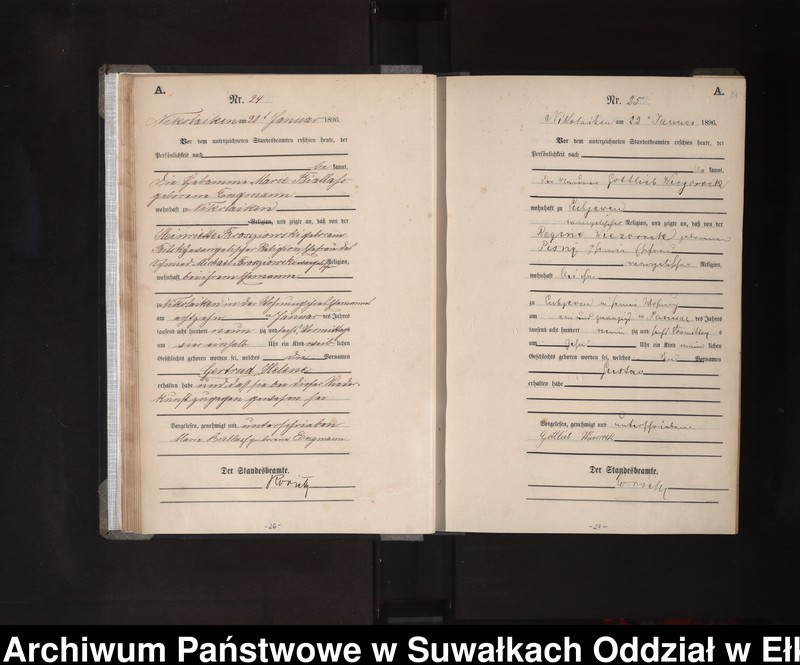 A.
Nr. 24
Nikolaiken am 22t Januar 1896.
Vor dem unterzeichneten Standesbeamten erschien heute, der
Persönlichkeit nach
be kannt,
die Hebamme Marie Biallas
geborene Engmann
wohnhaft zu Nikolaiken
Religion, und zeigte an, daß von der
Henriette
evangelischer Religion Ehefrau des
Religion,
wohnhaft bei ihrem Ehemanne
zu Nikolaiken in der Wohnung ihres Ehemannes
am achtzehn ten Januar des Jahres
tausend acht hundert neunzig und sechs Vormittags
um vier einhalb Uhr ein Kind weib lichen
Geschlechts geboren worden sei, welches die Vornamen
Gertrud Helene
erhalten habe und daß sie bei dieser Nieder-
kunft zugegen gewesen sei
Vorgelesen, genehmigt und unterschrieben
Marie Biallas geborene Engmann
Der Standesbeamte.
-26-
A.
Nr. 25
Nikolaiken am 22 ten Januar 1896.
Vor dem unterzeichneten Standesbeamten erschien heute, der
Persönlichkeit nach
be kannt,
der Gottlieb
wohnhaft zu
evangelischer Religion, und zeigte an, daß von der
Regine geborene
seiner Ehefrau
evangelischer Religion,
wohnhaft bei ihm
zu in seiner Wohnung
am ein und zwanzig ten Januar des Jahres
tausend acht hundert neunzig und sechs Vormittags
um Uhr ein Kind männ lichen
Geschlechts geboren worden sei, welches den Vornamen
Gustav
erhalten habe
Vorgelesen, genehmigt und unterschrieben
Gottlieb
Der Standesbeamte.
-27-
Archiwum Państwowe w Suwałkach Oddział w Ełk